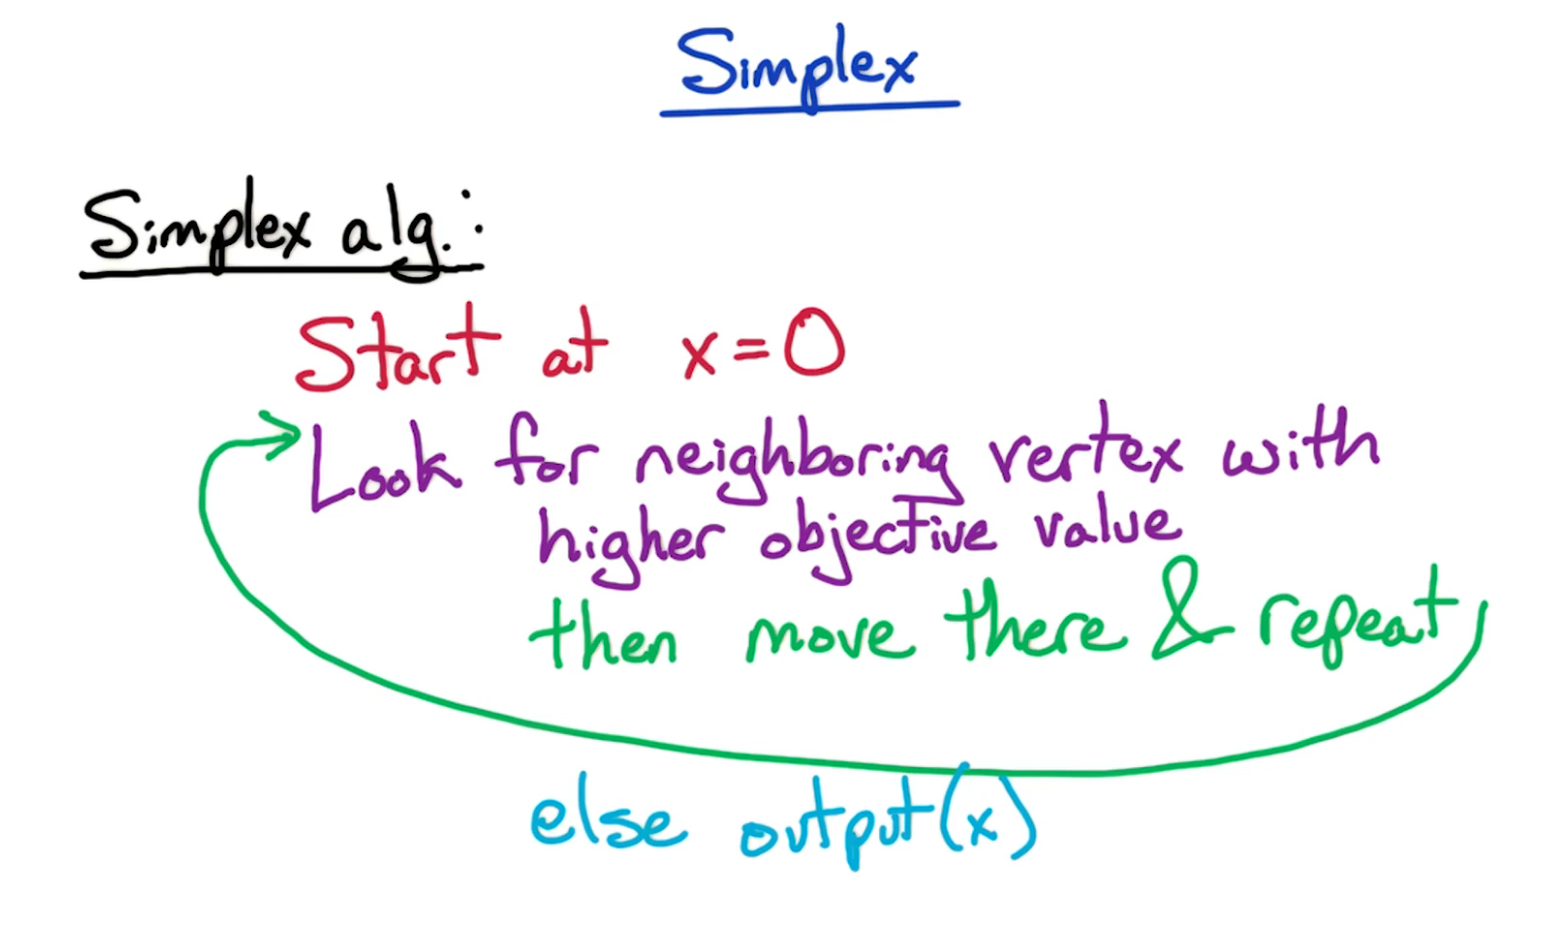 Simplex
Simplex alg.:
Start at x=0
Look for neighboring vertex with
higher objective value
then move there & repeat
else output(x)